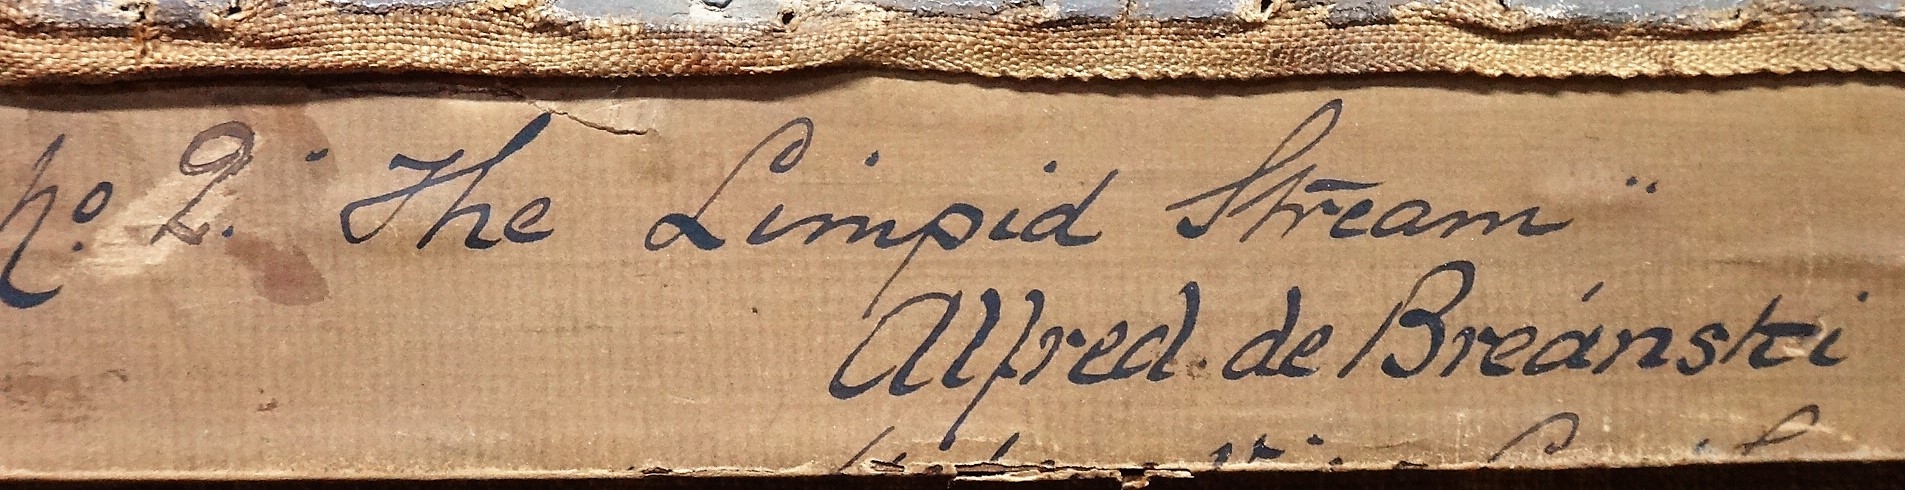 No. 2. "The Limpid Stream"
Alfred de Breánski